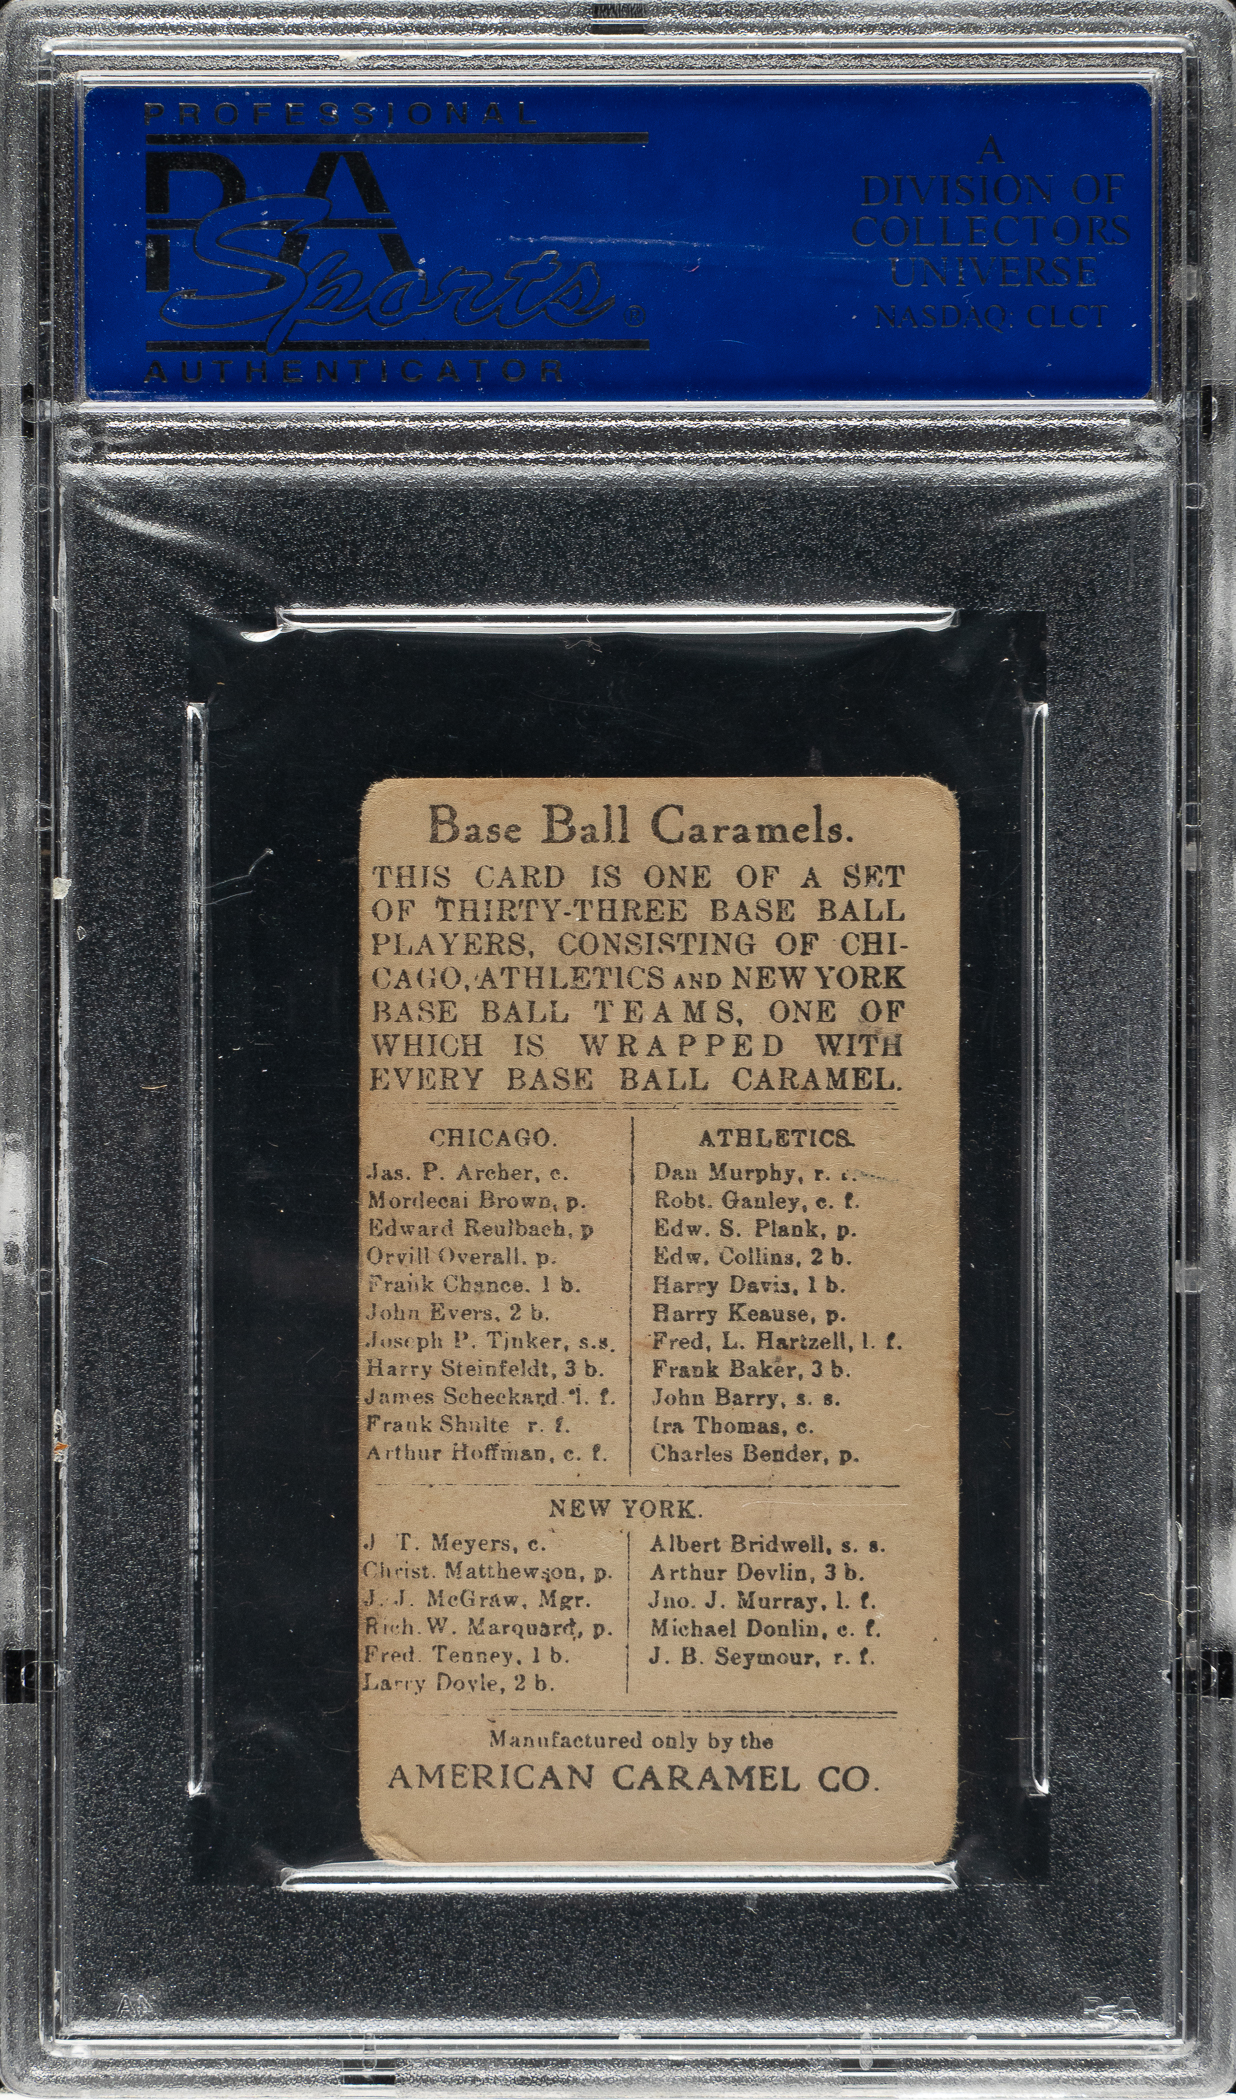 PROFESSIONAL
PSA
Sports®
AUTHENTICATOR
A
DIVISION OF
COLLECTORS
UNIVERSE
NASDAQ: CLCT
Base Ball Caramels.
THIS CARD IS ONE OF A SET
OF THIRTY-THREE BASE BALL
PLAYERS, CONSISTING OF CHI-
CAGO, ATHLETICS AND NEW YORK
BASE BALL TEAMS, ONE OF
WHICH IS WRAPPED WITH
EVERY BASE BALL CARAMEL.
CHICAGO.
Jas. P. Archer, c.
Mordecai Brown, p.
Edward Reulbach, p
Orvill Overall, p.
Frank Chance. 1 b.
John Evers, 2 b.
Joseph P. Tinker, s.s.
Harry Steinfeldt, 3 b.
James Scheckard. l. f.
Frank Shulte r. f.
Arthur Hoffman, c. f.
ATHLETICS.
Dan Murphy, r.
Robt. Ganley, c. f.
Edw. S. Plank, p.
Edw. Collins, 2 b.
Harry Davis, 1 b.
Harry Keause, p.
Fred. L. Hartzell, l. f.
Frank Baker, 3 b.
John Barry, s. s.
Ira Thomas, c.
Charles Bender, p.
NEW YORK.
J T. Meyers, c.
Christ. Matthewson, p.
J. J. McGraw, Mgr.
Rich. W. Marquard, p.
Fred. Tenney, 1 b.
Larry Doyle, 2 b.
Albert Bridwell, s. s.
Arthur Devlin, 3 b.
Jno. J. Murray, l. f.
Michael Donlin, c. f.
J. B. Seymour, r. f.
Manufactured only by the
AMERICAN CARAMEL CO.
PSA